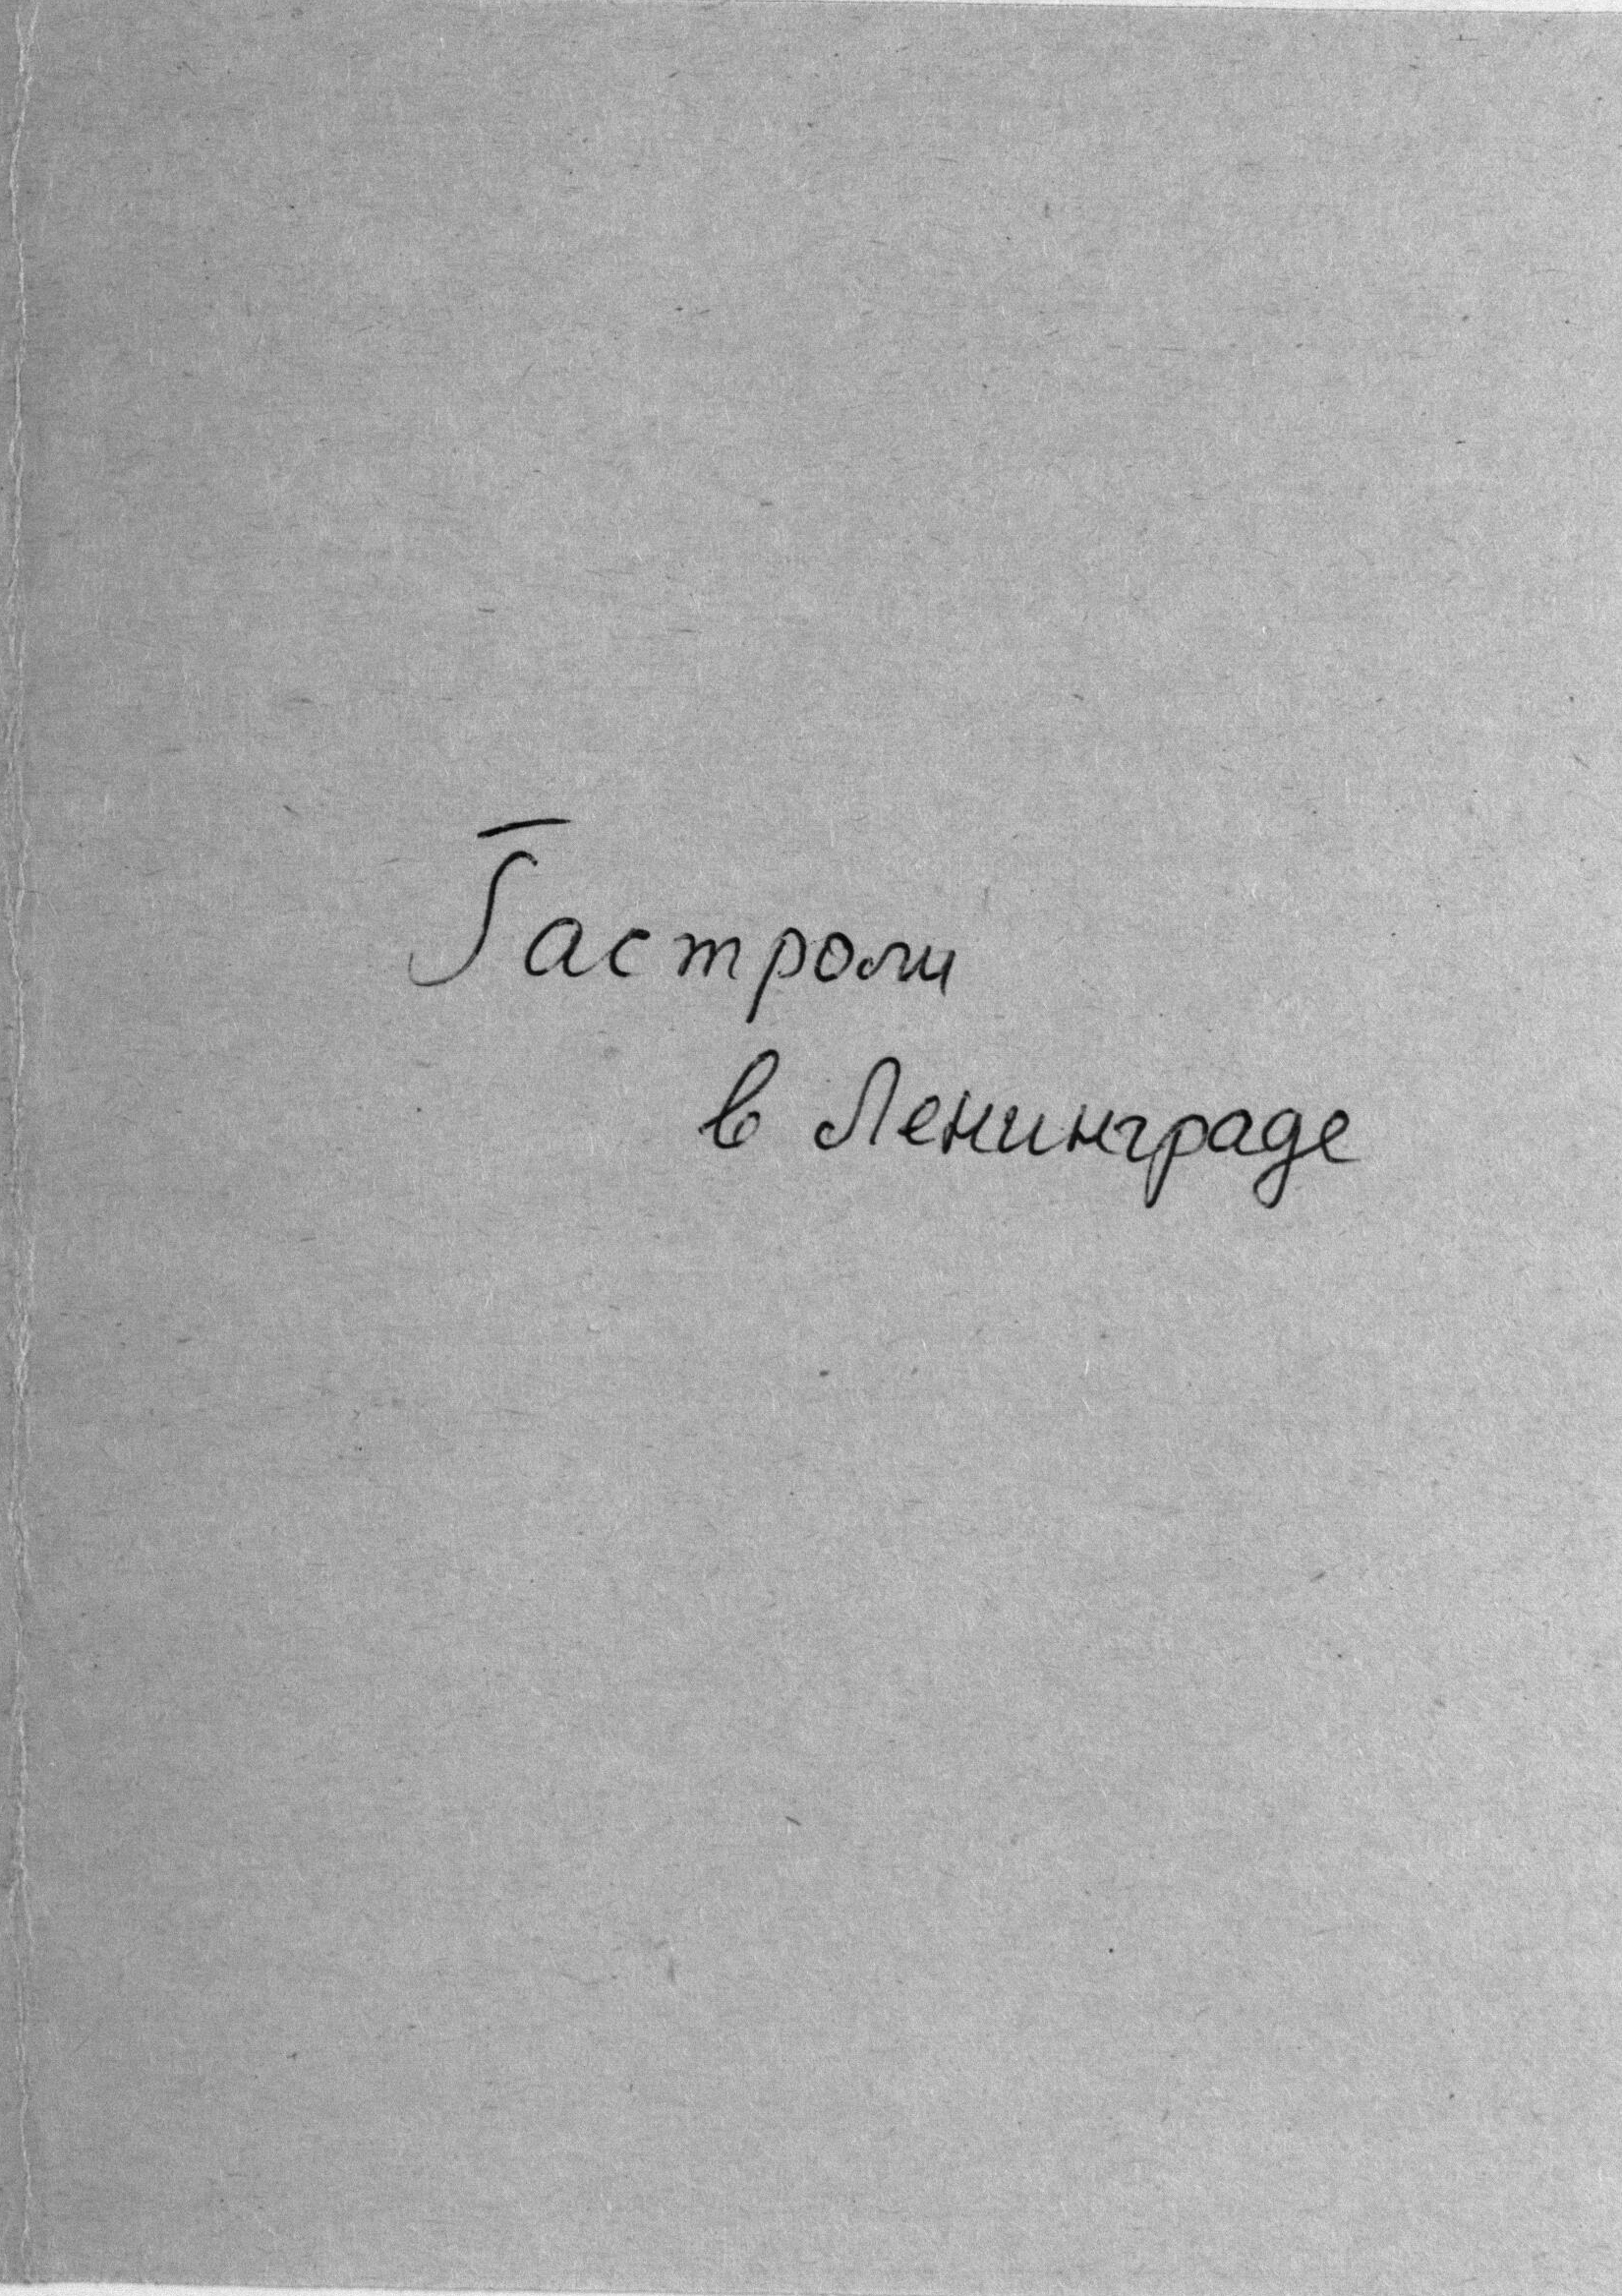 Гастроли
в Ленинграде